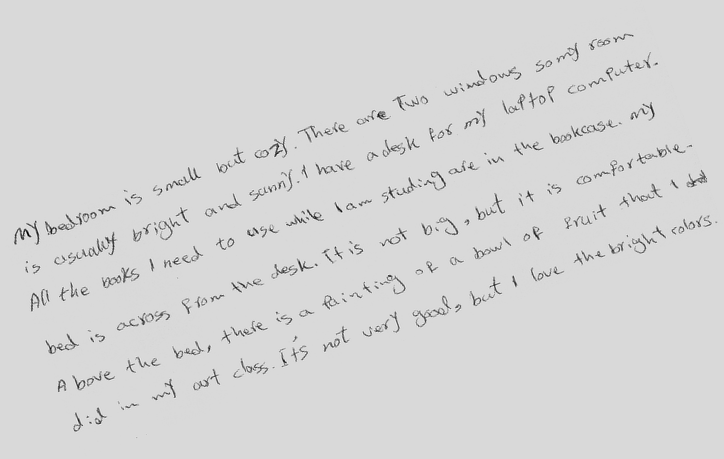 My bedroom is small but cozy. There are Two windows so my room
is usually bright and sunny. I have a desk for my laptop computer.
All the books I need to use while I am studing are in the bookcase. My
bed is across from the desk. It is not big, but it is comfortable.
Above the bed, there is a painting of a bowl of fruit that I
did in my art class. It's not very good, but I love the bright colors.